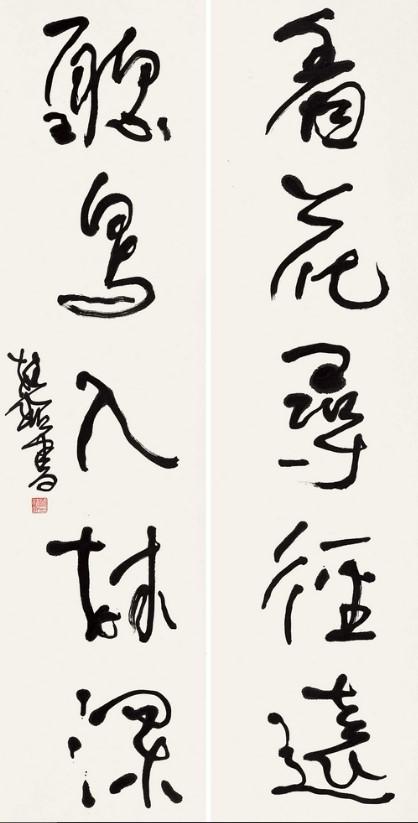 看花尋徑遠
聽鳥入林深
書